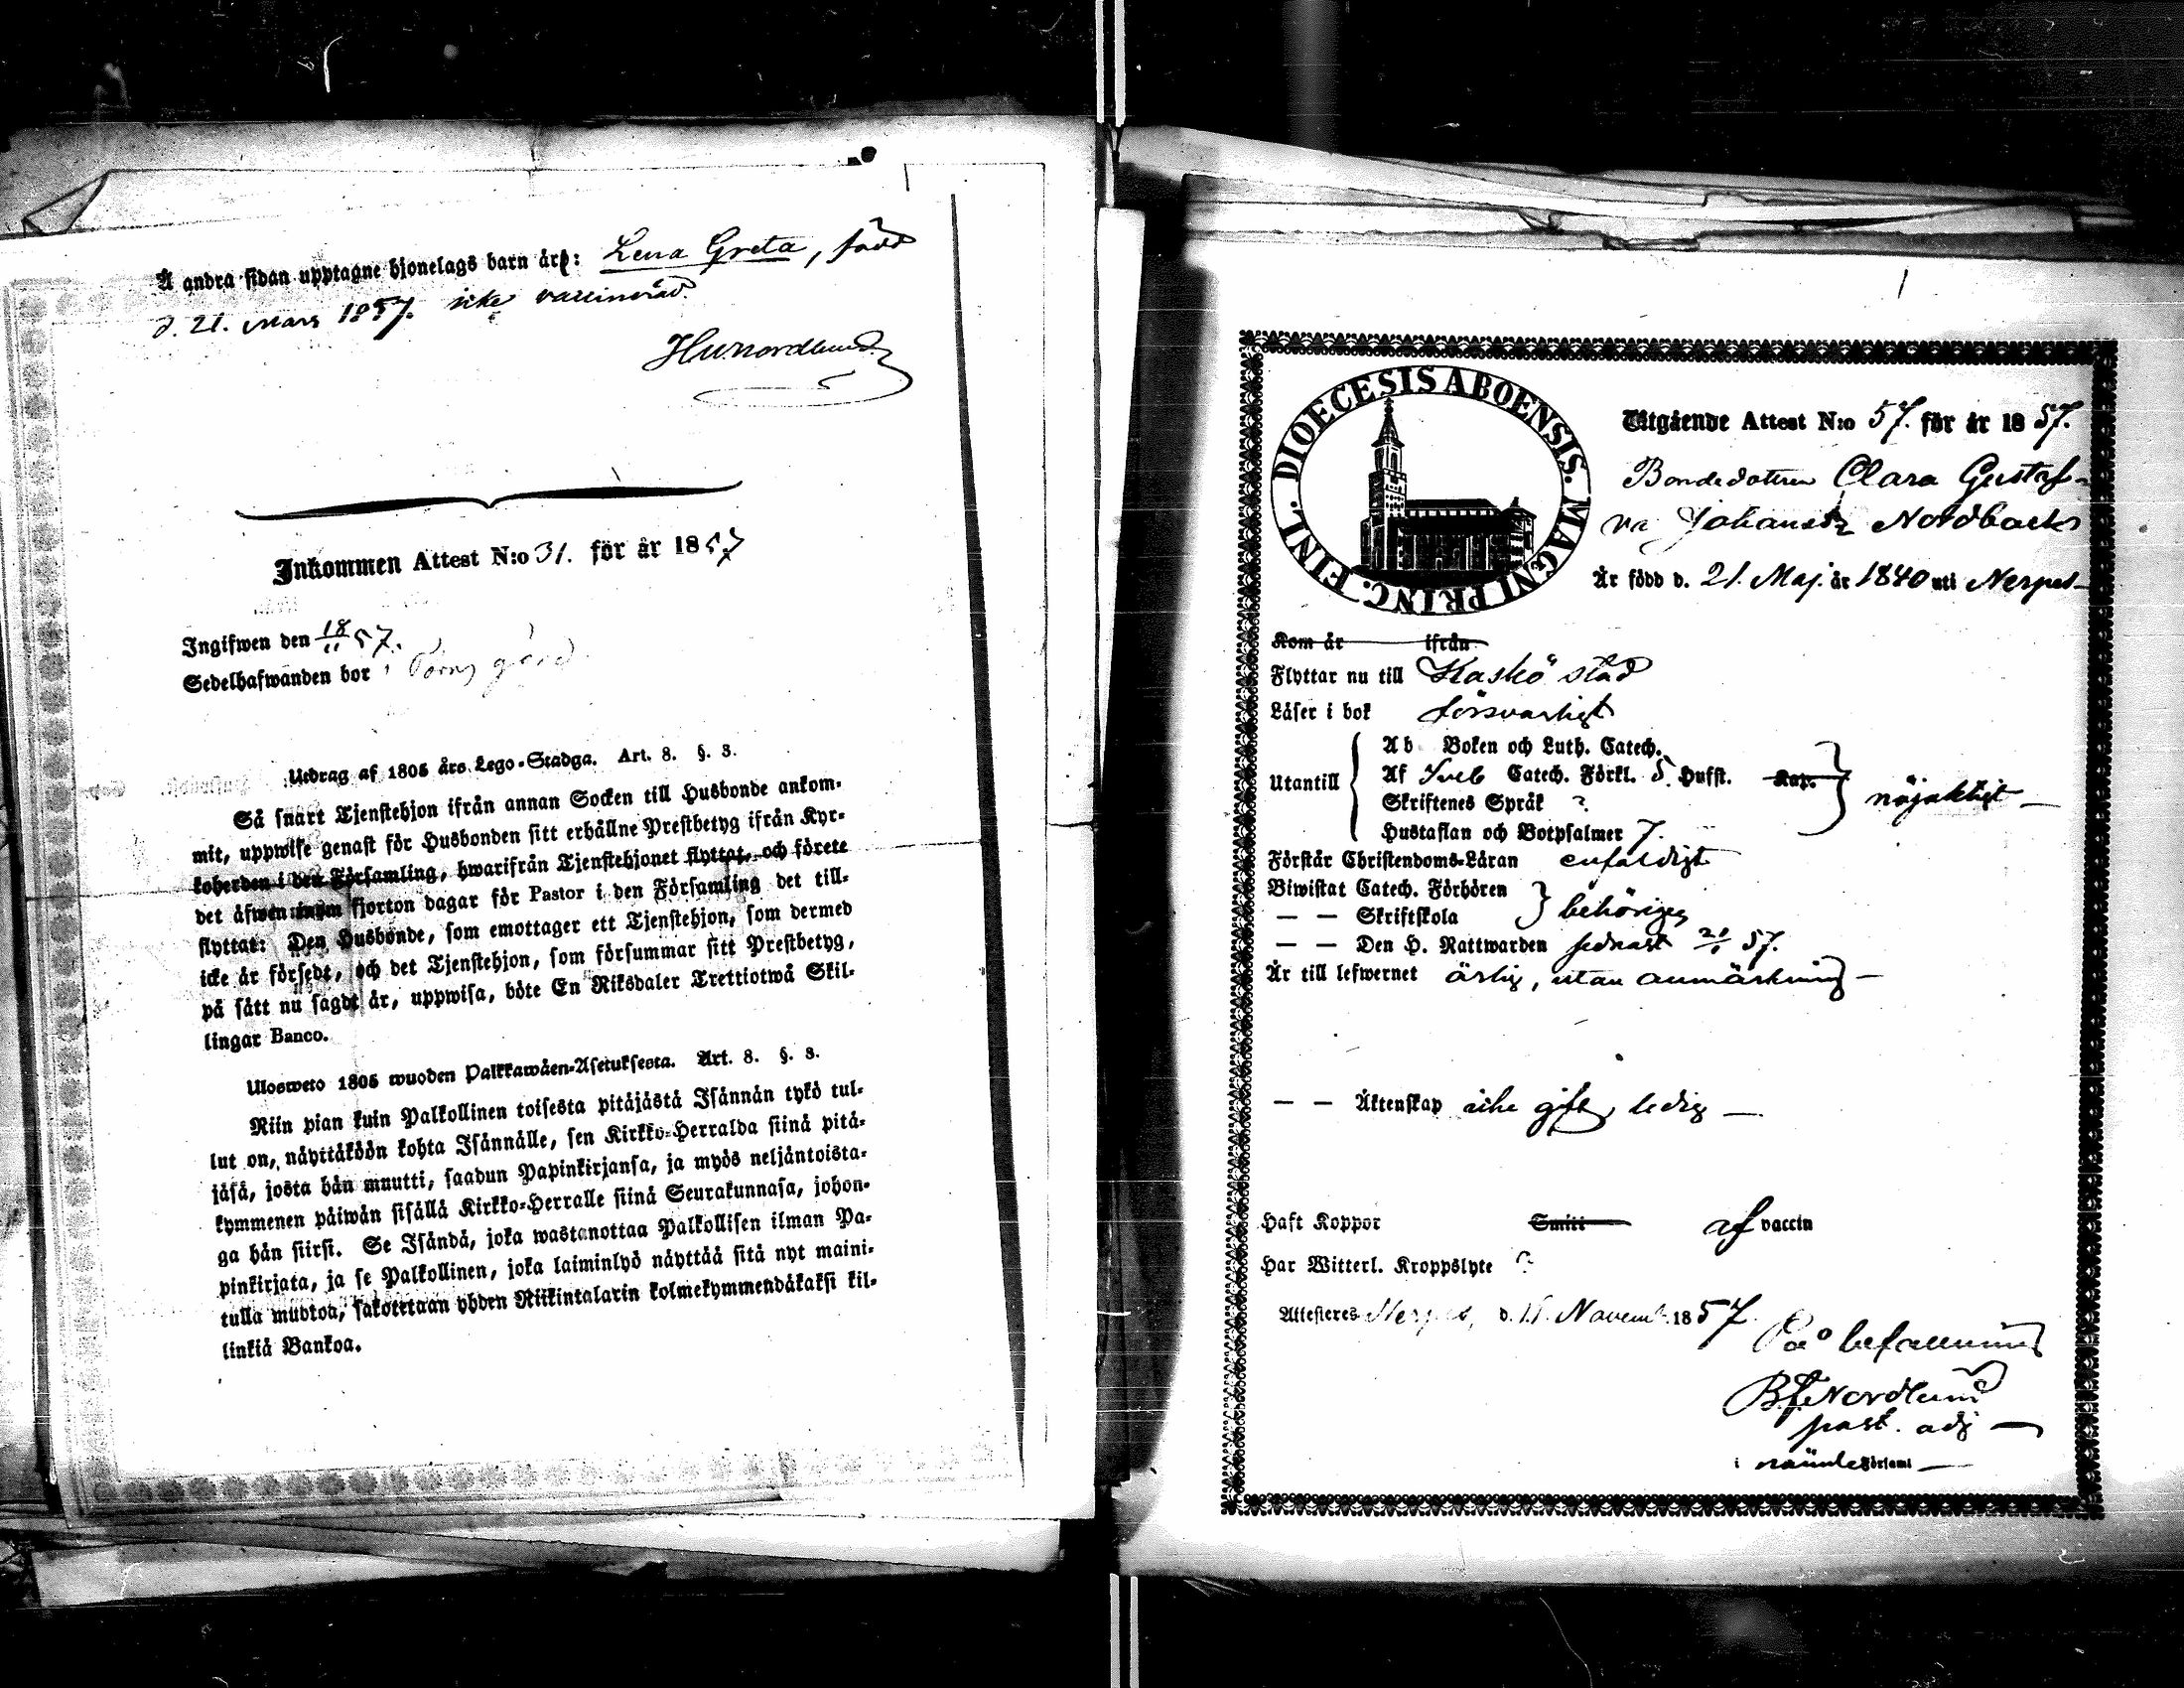 Å andra sidan upptagne hjonelags barn är: Lena Greta, född
d. 21. Mars 1857. icke vaccinerad.
Nordlund
Inkommen Attest N:o 31. för år 1857
Ingifwen den 18/11 57.
Sedelhafwanden bor i gård
Utdrag af 1805 års Lego-Stadga. Art. 8. §. 3.
Så snart Tjenstehjon ifrån annan Socken till Husbonde ankom-
mit, uppwise genast för Husbonden sitt erhållne Prestbetyg ifrån Kyr-
koherden i den Församling, hwarifrån Tjenstehjonet flyttat, och förete
det äfwen inom fjorton dagar för Pastor i den Församling det till-
flyttat: Den Husbonde, som emottager ett Tjenstehjon, som dermed
icke är försedt, och det Tjenstehjon, som försummar sitt Prestbetyg,
på sätt nu sagdt är, uppwisa, böte En Riksdaler Trettiotwå Skil-
lingar Banco.
Ulosweto 1805 wuoden Palkkawäen-Asetuksesta. Art. 8. §. 3.
Niin pian kuin Palkollinen toisesta pitäjästä Isännän tykö tul-
lut on, näyttäköön kohta Isännälle, sen Kirkko-Herralda siinä pitä-
jäsä, josta hän muutti, saadun Papinkirjansa, ja myös neljäntoista-
kymmenen päiwän sisällä Kirkko-Herralle siinä Seurakunnasa, johon-
ga hän siirsi. Se Isändä, joka wastanottaa Palkollisen ilman Pa-
pinkirjata, ja se Palkollinen, joka laiminlyö näyttää sitä nyt maini-
tulla muotoa, sakotetaan yhden Riikintalarin kolmekymmendäkaksi kil-
linkiä Bankoa.
DIOECESIS ABOENSIS. MAGNI PRINC. FINL.
Utgående Attest N:o 57. för år 1857.
Bondedottren Clara Gustaf-
va Johansdr Nordback
Är född d. 21. Maj. år 1840 uti Nerpes
Kom år ifrån
Flyttar nu till Kaskö stad
Läser i bok försvarligt
Utantill
Ab Boken och Luth. Catech.
Af Sveb Catech. Förkl. 5. Hufst. Kap.
nöjaktigt
Skriftenes Språk ?
Hustaflan och Botpsalmer 7.
Förstår Christendoms-Läran enfaldigt
Biwistat Catech. Förhören
— — Skriftskola
behörigen
— — Den H. Nattwarden sednast 57.
Är till lefwernet ärlig, utan anmärkning —
— — Äktenskap icke gift, ledig —
Haft Koppor Smitt af vaccin
Har Witterl. Kroppslyte ?
Attesteres Nerpes, d. 11. Novemb. 1857.
På befallning
Nordlund
past. adj —
i nämde Församl —